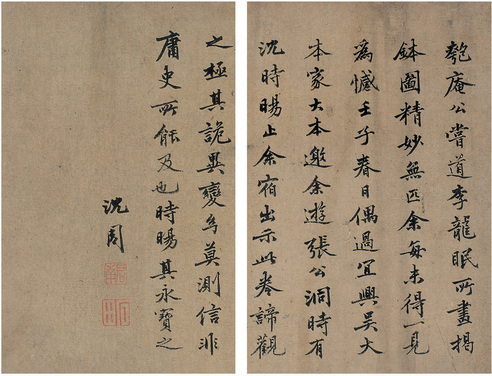 匏庵公嘗道李龍眠所畫揭
鉢圖精妙無匹余每未得一見
為憾壬子春日偶過宜興吴大
本家大本邀余遊張公洞時有
沈時暘止余宿出示此卷諦觀
之極其詭異變幻莫測信非
庸史所能及也時暘其永寶之
沈周